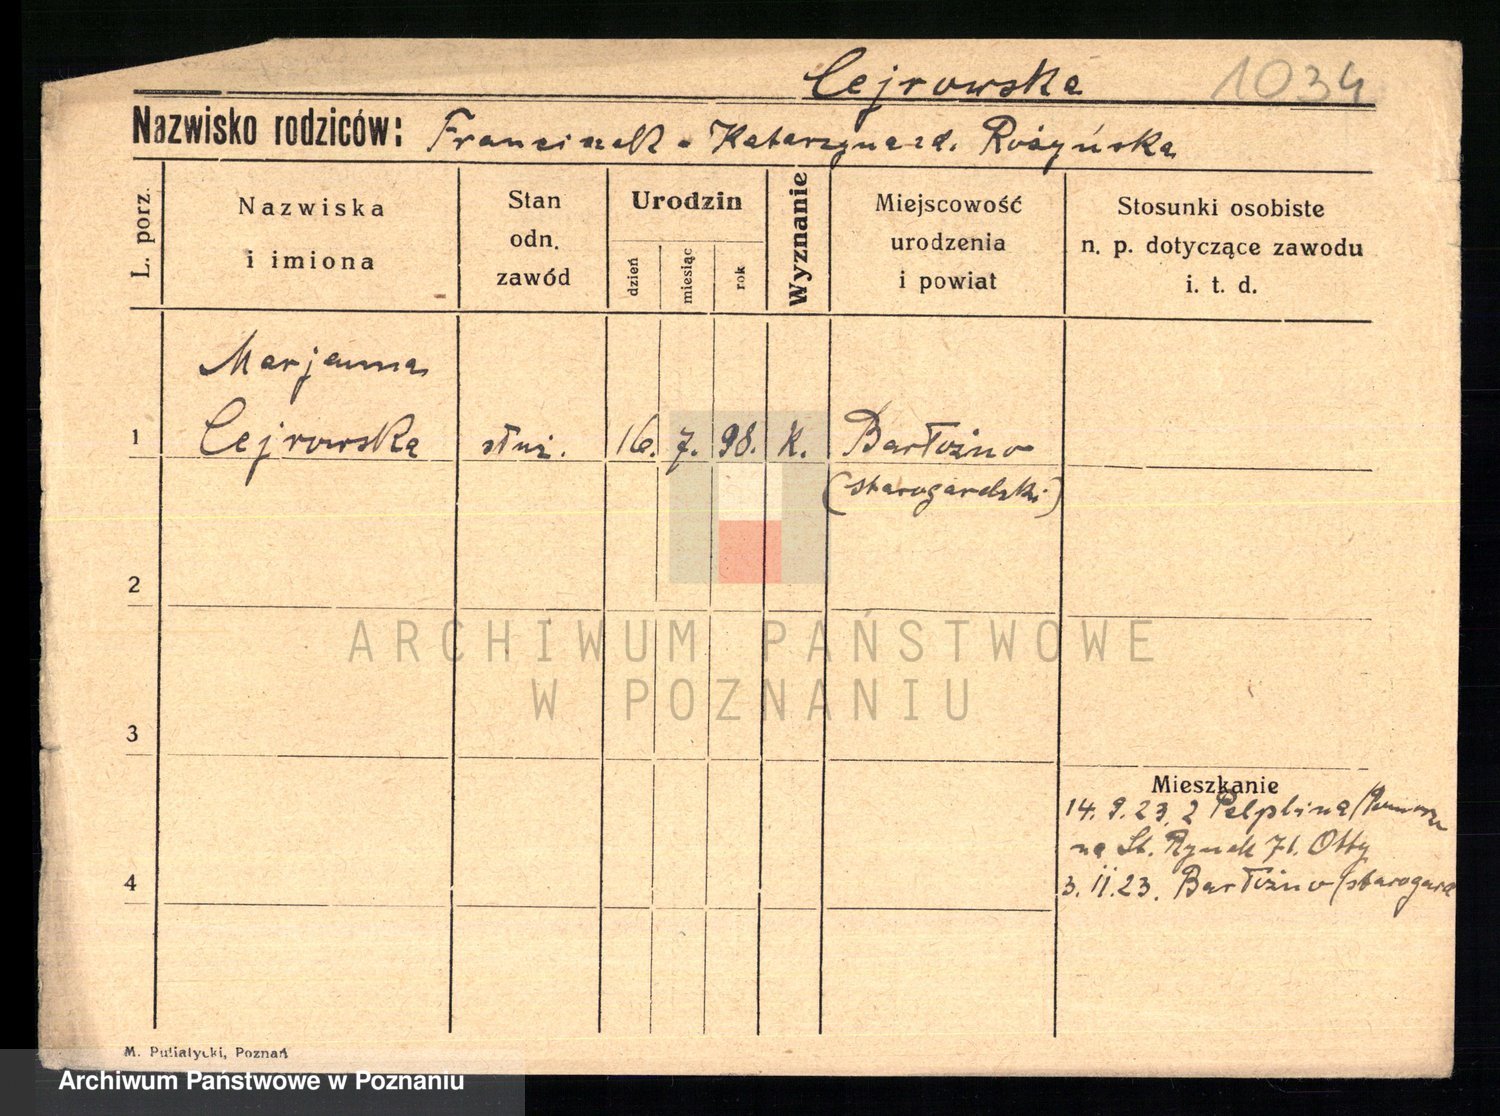 Cejrowska 1034
Nazwisko rodziców: Franciszek - Katarzyna zd. Rożyńska
L. porz.
Nazwiska
i imiona
Stan
odn.
zawód
Urodzin
dzień
miesiąc
rok
Wyznanie
Miejscowość
urodzenia
i powiat
Stosunki osobiste
n. p. dotyczące zawodu
i. t. d.
Marjanna
1 Cejrowska służ. 16. 7. 98. K. Bartożno
(starogardzki)
2
ARCHIWUM PAŃSTWOWE
W POZNANIU
3
Mieszkanie
14. 9. 23. z Pelplina/
na St. Rynek 71. Otty
4
3. 11. 23. Bartożno/starogard
M. Putiatycki, Poznań
Archiwum Państwowe w Poznaniu